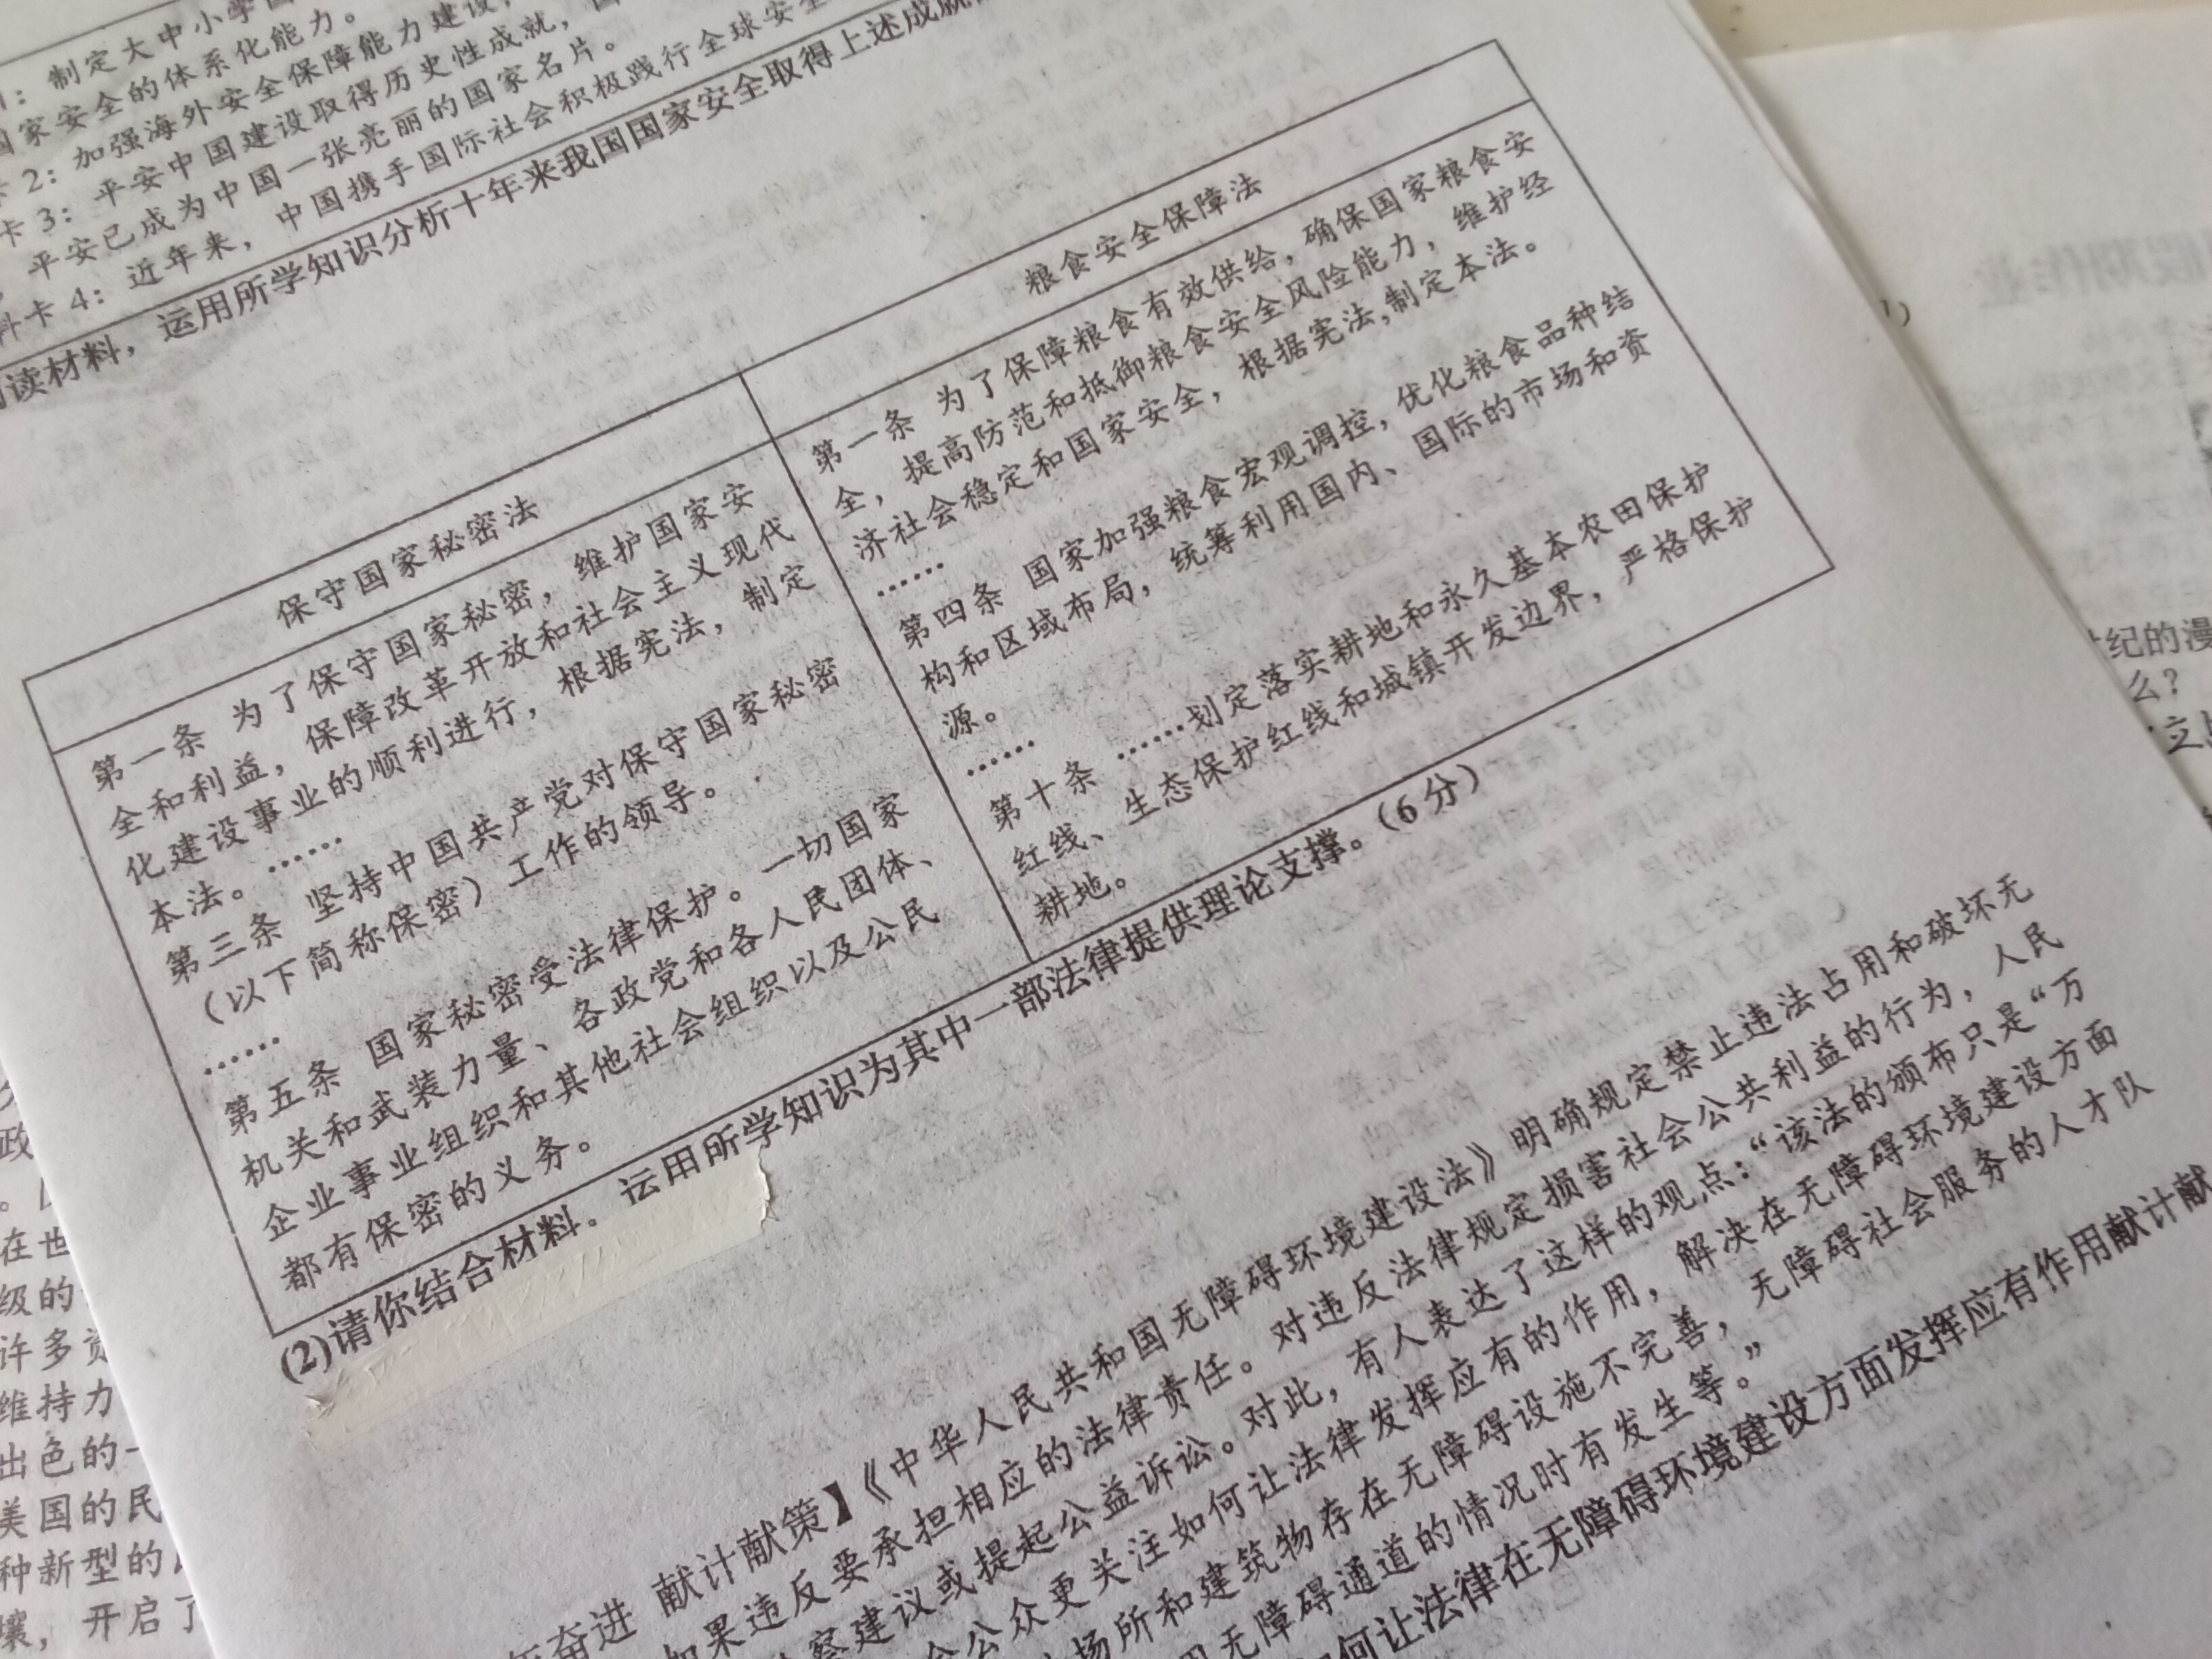 制定大中小学国
国家安全的体系化能力。
卡2：加强海外安全保障能力建设，
卡3：平安中国建设取得历史性成就，
平安已成为中国一张亮丽的国家名片。
料卡4：近年来，中国携手国际社会积极践行全球安全
读材料，运用所学知识分析十年来我国国家安全取得上述成就
保守国家秘密法
第一条 为了保守国家秘密，维护国家安
全和利益，保障改革开放和社会主义现代
化建设事业的顺利进行，根据宪法，制定
本法。……
第三条 坚持中国共产党对保守国家秘密
（以下简称保密）工作的领导。
……
第五条 国家秘密受法律保护。一切国家
机关和武装力量、各政党和各人民团体、
企业事业组织和其他社会组织以及公民
都有保密的义务。
粮食安全保障法
第一条 为了保障粮食有效供给，确保国家粮食安
全，提高防范和抵御粮食安全风险能力，维护经
济社会稳定和国家安全，根据宪法,制定本法。
……
第四条 国家加强粮食宏观调控，优化粮食品种结
构和区域布局，统筹利用国内、国际的市场和资
源。
……
第十条 ……划定落实耕地和永久基本农田保护
红线、生态保护红线和城镇开发边界，严格保护
耕地。
(2)请你结合材料，运用所学知识为其中一部法律提供理论支撑。（6分）
年奋进 献计献策】《中华人民共和国无障碍环境建设法》明确规定禁止违法占用和破坏无
如果违反要承担相应的法律责任。对违反法律规定损害社会公共利益的行为，人民
察建议或提起公益诉讼。对此，有人表达了这样的观点：“该法的颁布只是“万
公众更关注如何让法律发挥应有的作用，解决在无障碍环境建设方面
场所和建筑物存在无障碍设施不完善，无障碍社会服务的人才队
用无障碍通道的情况时有发生等。”
如何让法律在无障碍环境建设方面发挥应有作用献计献
政
在世
级的
许多资
维持力
出色的一
美国的民
种新型的
壤，开启了
世纪的漫
么？
立